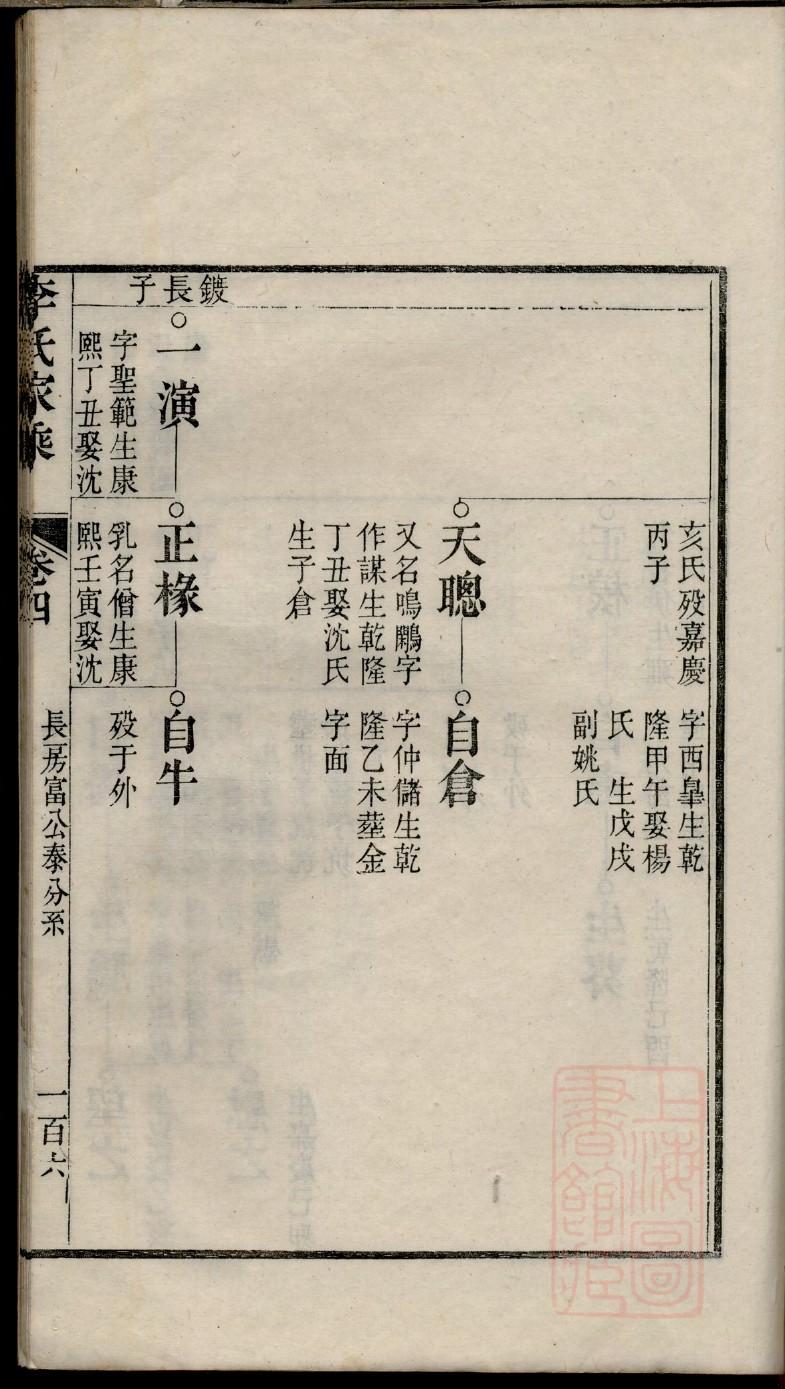 亥氏殁嘉慶
丙子
字西臯生乾
隆甲午娶楊
氏　生戊戌
副姚氏
天聰
又名鳴鵰字
作謀生乾隆
丁丑娶沈氏
生子倉
自倉
字仲儲生乾
隆乙未塟金
字面
鍍長子
一演
字聖範生康
熙丁丑娶沈
正椽
乳名僧生康
熙壬寅娶沈
自牛
殁于外
李氏家乘
卷四
長房富公泰分系
一百六
上海圖書館藏